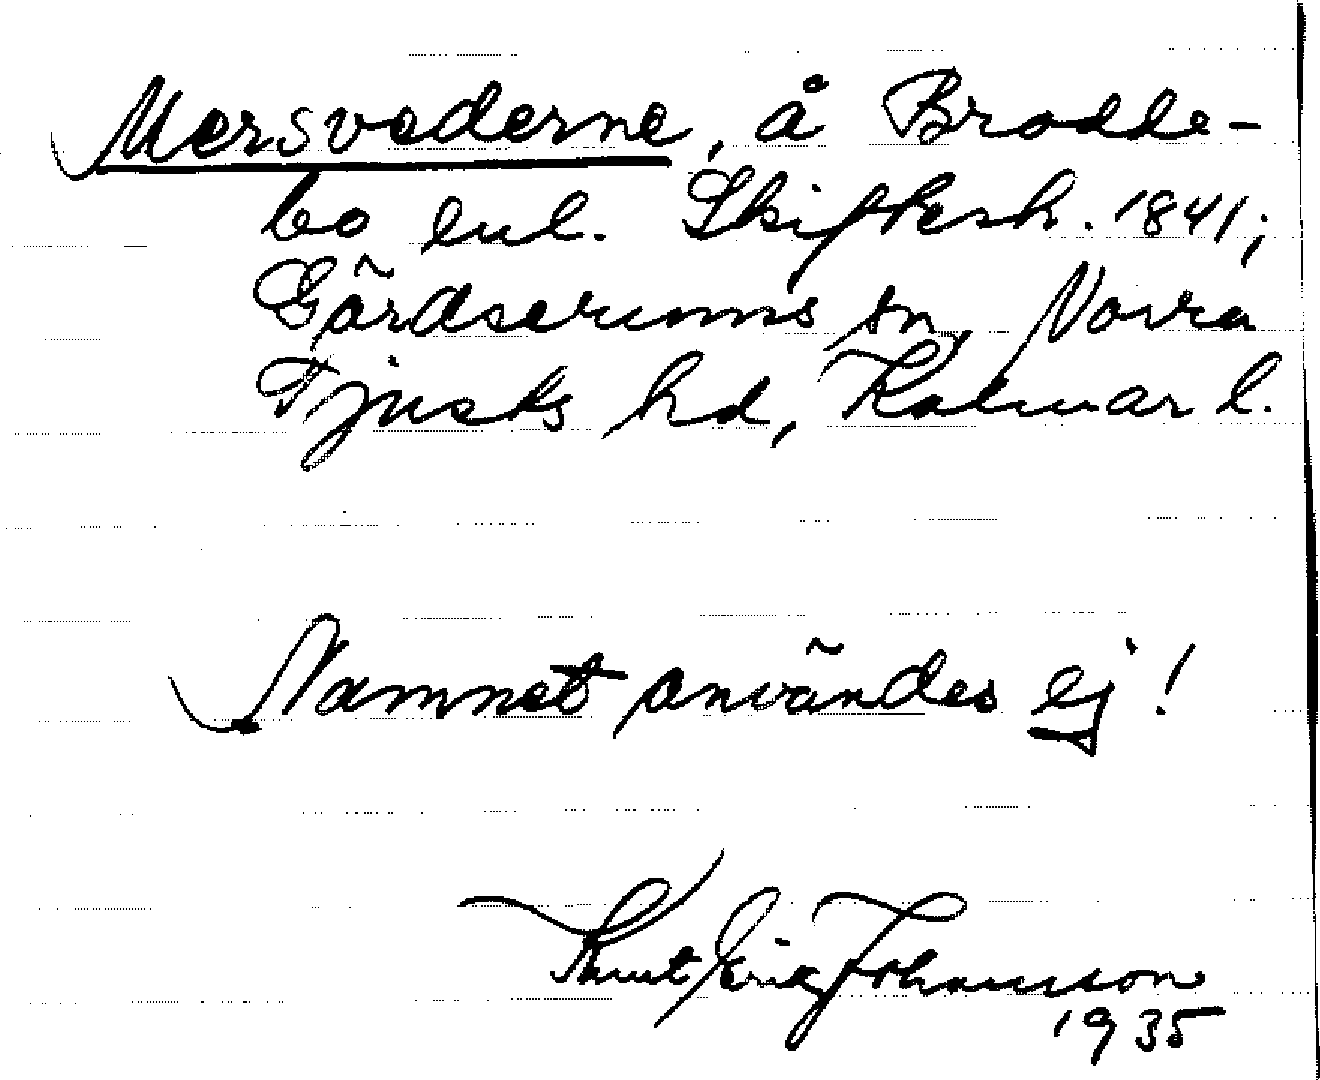 Mersvederne, å Brodde-
bo enl. Skiftesh. 1841;
Gärdserums sn, Norra
Tjusts hd, Kalmar l.
Namnet användes ej!
Knut Erik Johansson
1935